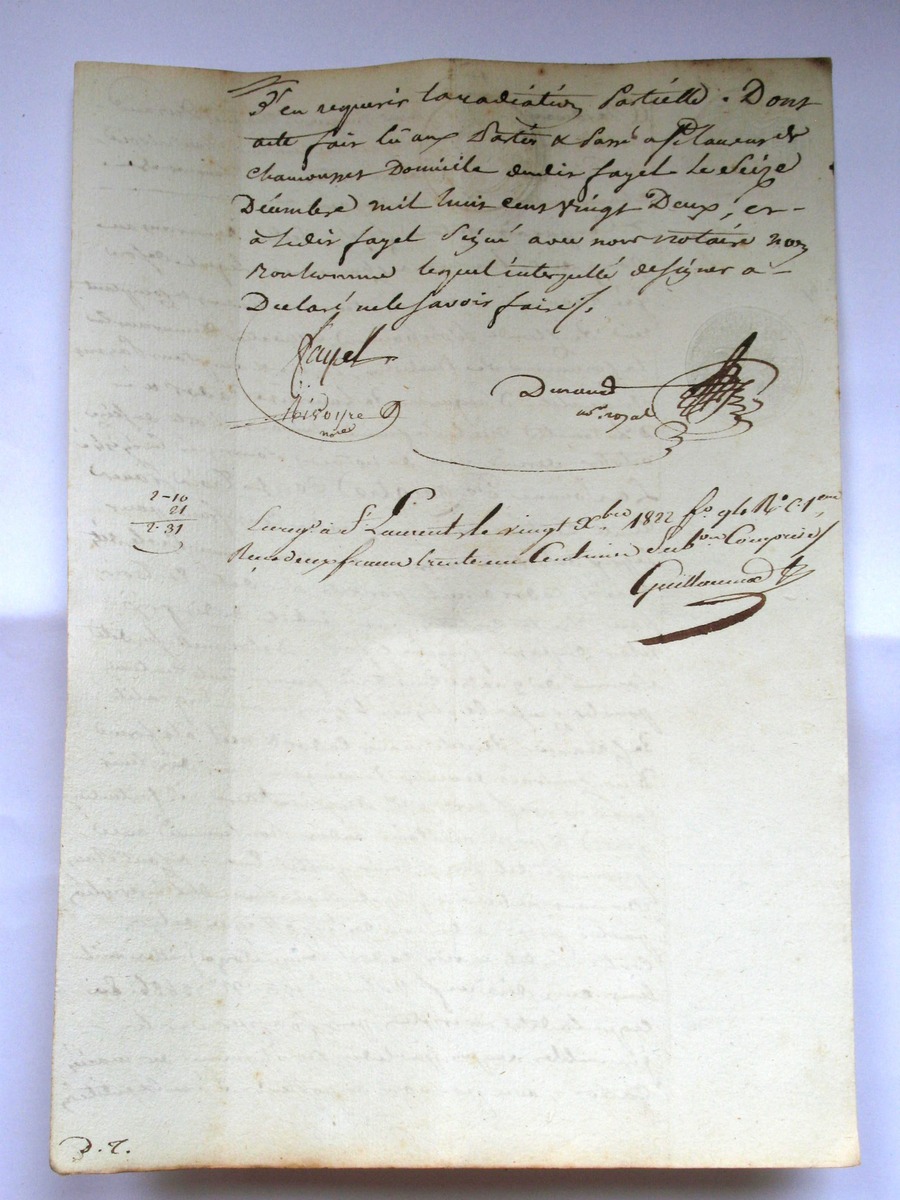 D'en requerir la radiation Partielle. Dont
acte fait lû aux Parties & Passé a
Chamousset Domicile dudit fayel Le Seize
Décembre mil huit cent vingt Deux, et
a ledit fayel Signé avec nous notaire non
Bonhomme lequel interpellé de signer a
Declaré ne le Savoir faire/.
fayel
Durand
n.re royal
Nisoyre
no.re
2-10
21
2.31
Enreg.é à St Laurent, le vingt Xbre 1822 f.o 96 R.o C. 1ere
Reçu deux francs trente un Centimes Sub.on Comprise
Guillermod
D. T.